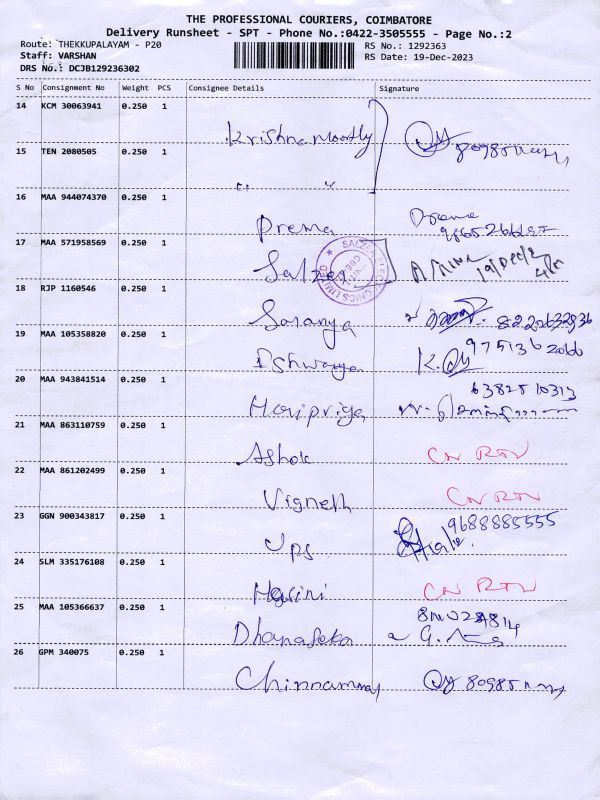 THE PROFESSIONAL COURIERS, COIMBATORE
Delivery Runsheet - SPT - Phone No.:0422-3505555 - Page No.:2
Route: THEKKUPALAYAM - P20
RS No.: 1292363
Staff: VARSHAN
RS Date: 19-Dec-2023
DRS No.: DCJB129236302
S No Consignment No Weight PCS Consignee Details Signature
14 KCM 30063941 0.250 1
Krishnamoorthy
15 TEN 2080505 0.250 1
16 MAA 944074370 0.250 1
Prema
17 MAA 571958569 0.250 1
Salzer
18 RJP 1160546 0.250 1
Saranya
19 MAA 105358820 0.250 1
Ishwarya K. 9751362066
20 MAA 943841514 0.250 1
6382510313
Haripriya
21 MAA 863110759 0.250 1
Ashok CN RTN
22 MAA 861202499 0.250 1
Vignesh CN RTN
23 GGN 900343817 0.250 1
9688885555
Ups
24 SLM 335176108 0.250 1
Hasini CN RTN
25 MAA 105366637 0.250 1
Dhanaseka
26 GPM 340075 0.250 1
Chinnammal